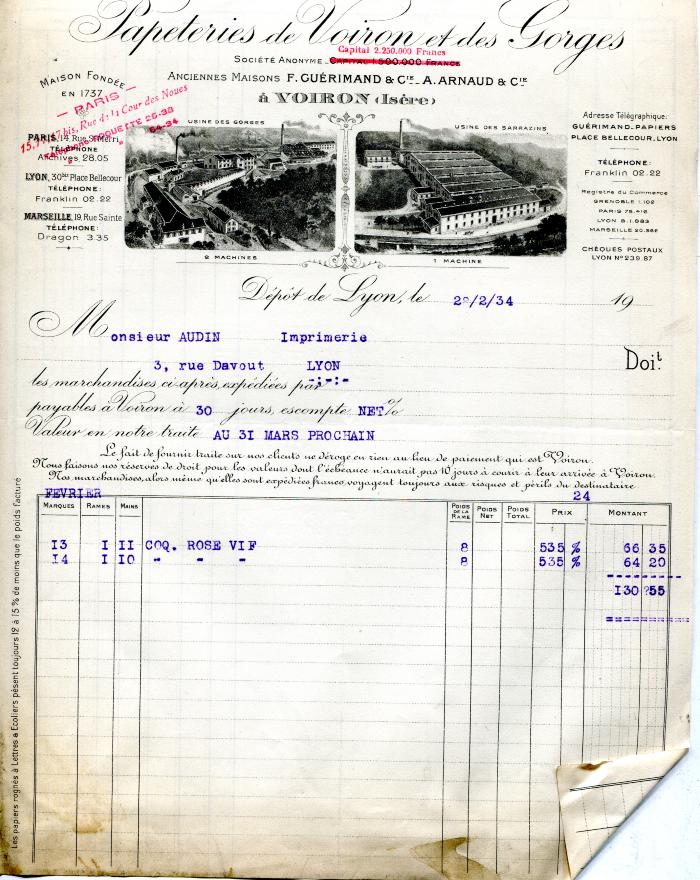 Papeteries de Voiron et des Gorges
Capital 2.250.000 Francs
Société Anonyme Capital 1.500.000 Francs
Anciennes Maisons F. GUÉRIMAND & Cie A. ARNAUD & Cie
à VOIRON (Isère)
MAISON FONDÉE
EN 1737
PARIS
bis, Rue de la Cour des Noues
ROQUETTE 26-38
64-34
PARIS, 14, Rue St Merri
TÉLÉPHONE
Archives 28.05
LYON, 30bis Place Bellecour
TÉLÉPHONE:
Franklin 02.22
MARSEILLE, 19, Rue Sainte
TÉLÉPHONE:
Dragon 3.35
USINE DES GORGES
2 MACHINES
USINE DES SARRAZINS
1 MACHINE
Adresse Télégraphique:
GUÉRIMAND-PAPIERS
PLACE BELLECOUR, LYON
TÉLÉPHONE:
Franklin 02.22
Registre du Commerce
GRENOBLE 1.102
PARIS 75.416
LYON B.1.983
MARSEILLE 20.366
CHÈQUES POSTAUX
LYON No 239.87
Dépôt de Lyon, le 28/2/34 19
Monsieur AUDIN Imprimerie
3, rue Davout LYON
-:-:-
Doit
les marchandises ci-après, expédiées par
payables à Voiron à 30 jours, escompte NET %
Valeur en notre traite AU 3I MARS PROCHAIN
Le fait de fournir traite sur nos clients ne déroge en rien au lieu de paiement qui est Voiron.
Nous faisons nos réserves de droit pour les valeurs dont l'échéance n'aurait pas 10 jours à courir à leur arrivée à Voiron.
Nos marchandises, alors même qu'elles sont expédiées franco, voyagent toujours aux risques et périls du destinataire
FEVRIER 24
MARQUES RAMES MAINS POIDS DE LA RAME POIDS NET POIDS TOTAL PRIX MONTANT
I3 I II COQ. ROSE VIF 8 535 % 66 35
I4 I IO " " " 8 535 % 64 20
I30 55
Les papiers rognés à Lettres & Ecoliers pèsent toujours 12 à 15 % de moins que le poids facturé